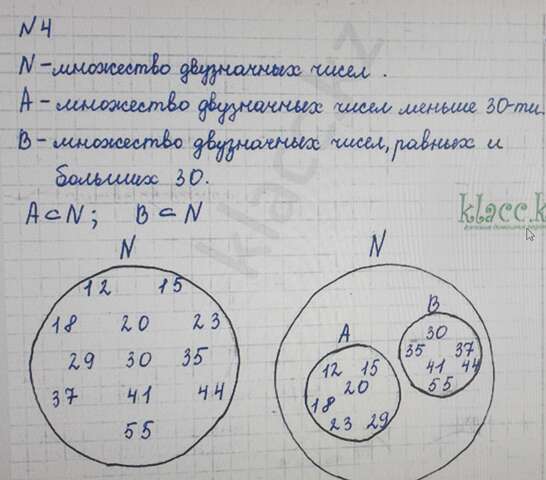 N 4
N - множество двузначных чисел.
A - множество двузначных чисел меньше 30-ти.
B - множество двузначных чисел, равных и
больших 30.
A ⊂ N; B ⊂ N
klacc.kz
klacc.k
N
12 15
18 20 23
29 30 35
37 41 44
55
N
A
12 15
20
18
23 29
B
30
35 37
41 44
55